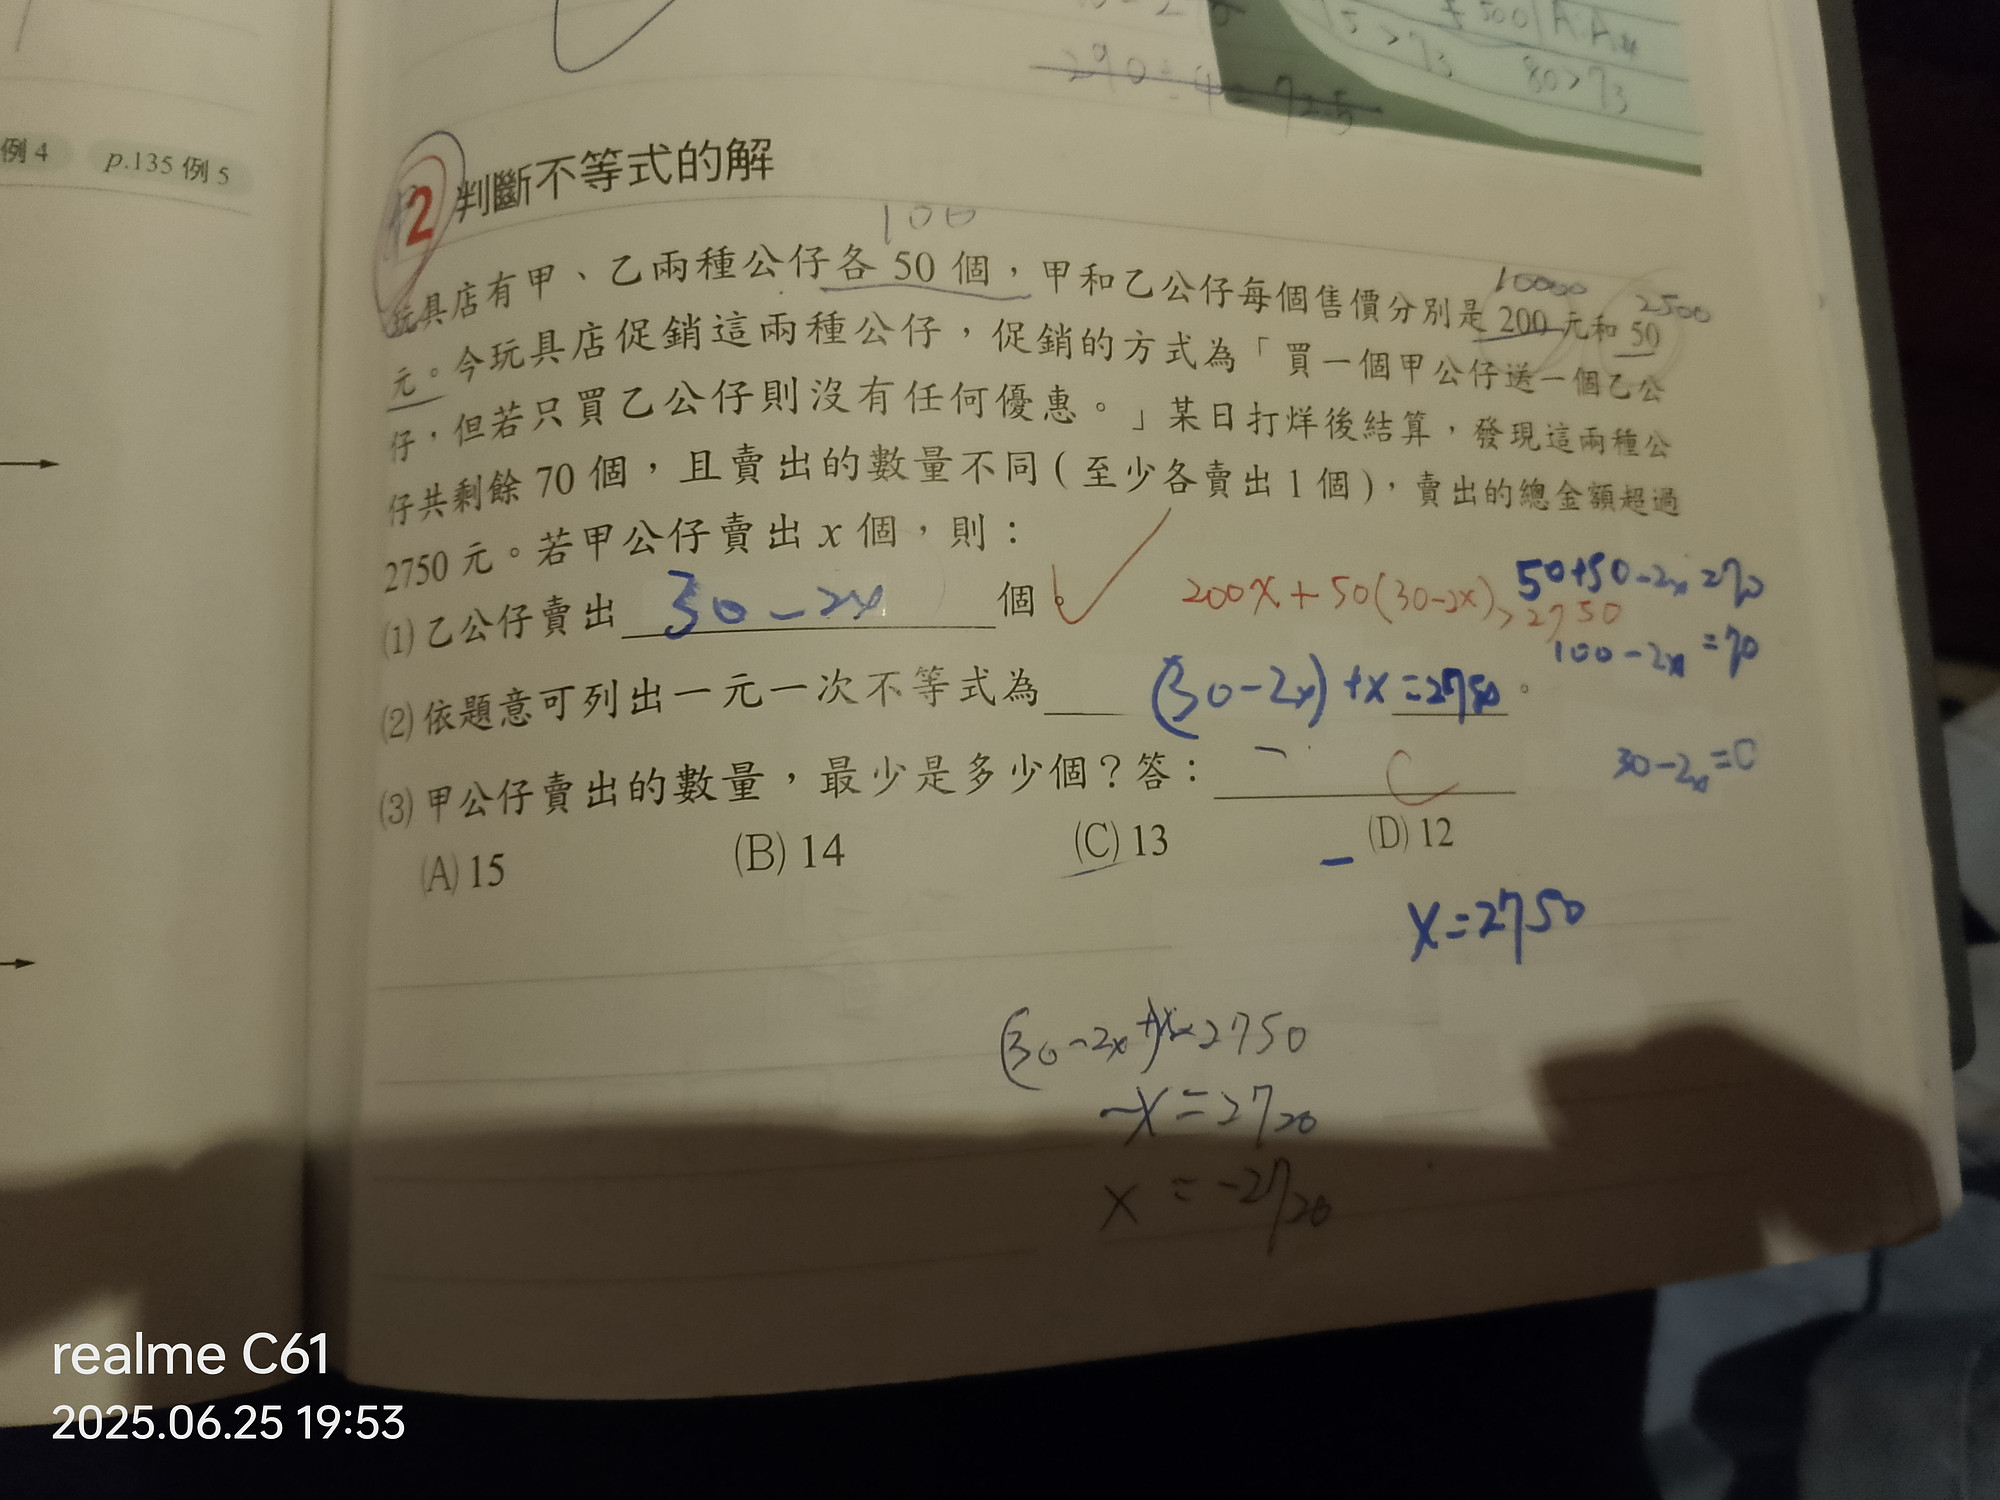 290÷4=725
75>73
80>73
例4 p.135 例5
2 判斷不等式的解
100
10000 2500
玩具店有甲、乙兩種公仔各 50 個，甲和乙公仔每個售價分別是 200 元和 50
元。今玩具店促銷這兩種公仔，促銷的方式為「買一個甲公仔送一個乙公
仔，但若只買乙公仔則沒有任何優惠。」某日打烊後結算，發現這兩種公
仔共剩餘 70 個，且賣出的數量不同(至少各賣出 1 個)，賣出的總金額超過
2750 元。若甲公仔賣出 x 個，則：
(1) 乙公仔賣出 30-2x 個。
200x+50(30-2x)>2750
50+50-2x=70
100-2x=70
(2) 依題意可列出一元一次不等式為 (30-2x)+x=2750。
30-2x=0
(3) 甲公仔賣出的數量，最少是多少個？答： C
(A) 15 (B) 14 (C) 13 (D) 12
x=2750
2750
-x=2720
x=-2720
realme C61
2025.06.25 19:53